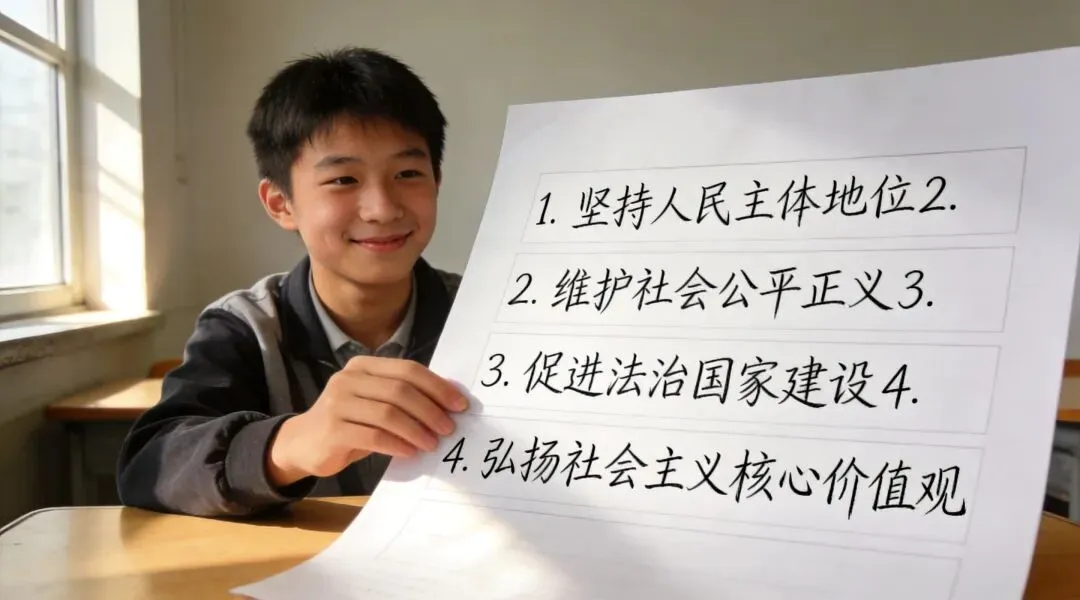 1. 坚持人民主体地位2.
2. 维护社会公平正义3.
3. 促进法治国家建设4.
4. 弘扬社会主义核心价值观